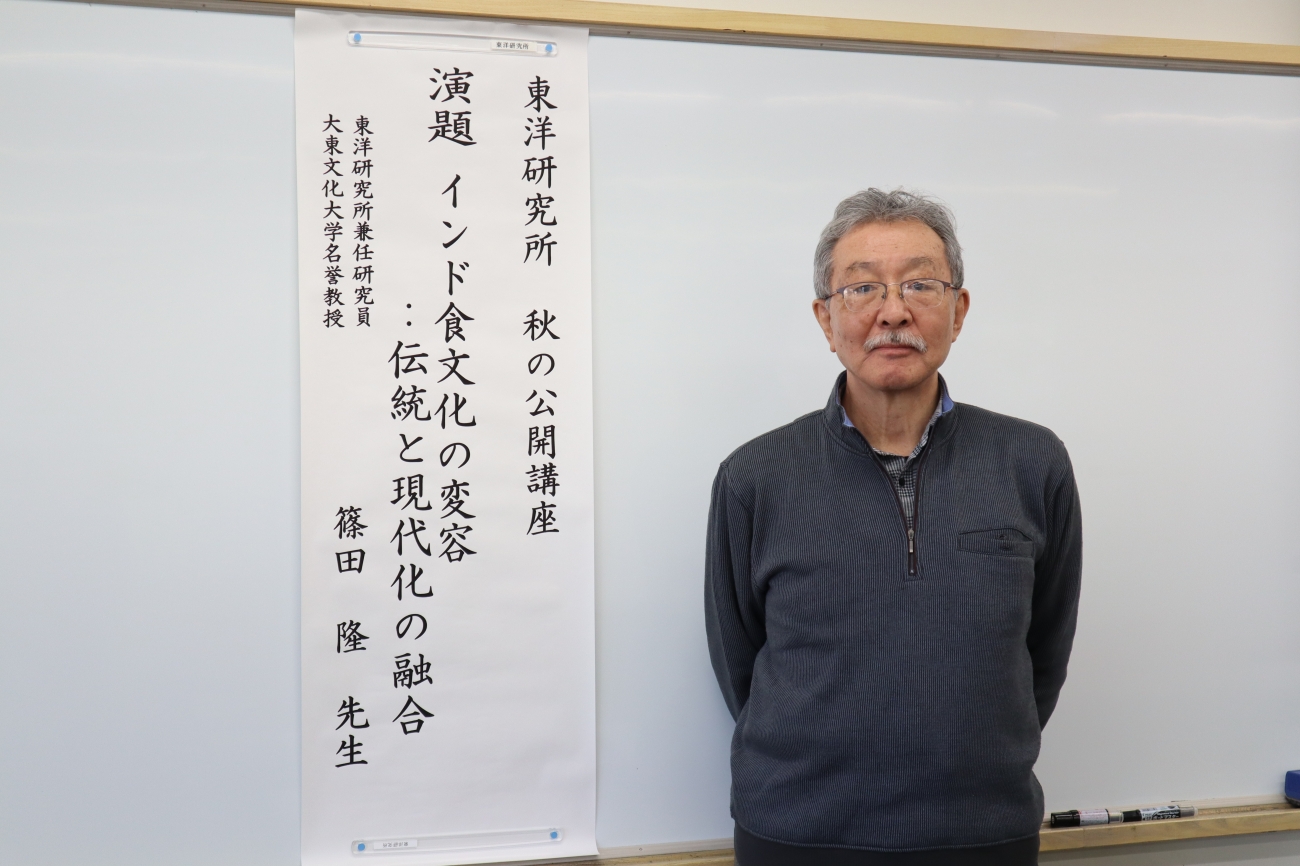 東洋研究所
東洋研究所 秋の公開講座
演題 インド食文化の変容
：伝統と現代化の融合
東洋研究所兼任研究員
大東文化大学名誉教授
篠田 隆 先生
東洋研究所